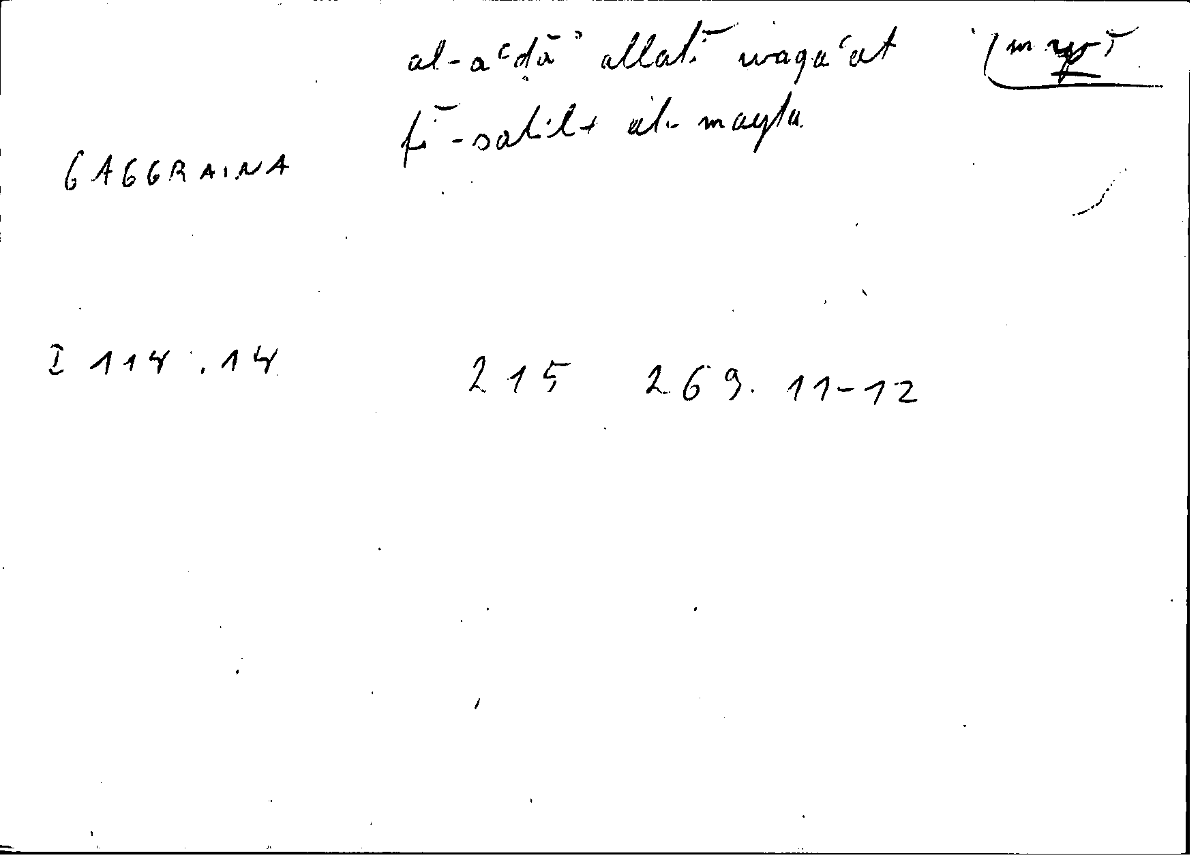 al-aʿḍāʾ allatī waqaʿat
fī sabīl al-mayta
GAGGRAINA
I 114.14 215 269. 11-12